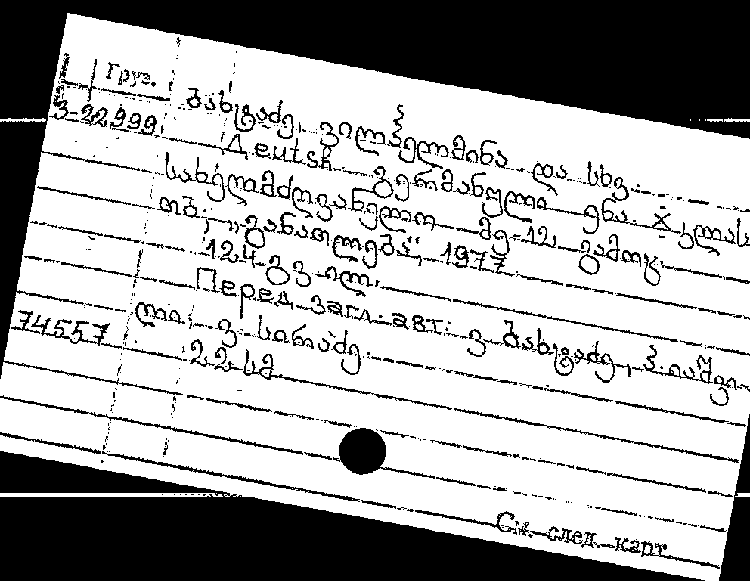 Груз.
3-22999
ბახტაძე, ვილჰელმინა და სხვ.
Deutsh გერმანული ენა. X კლას
სახელმძღვანელო მე-12 გამოც.
თბ., „განათლება", 1977
124 გვ ილ.
Перед загл. авт: ვ ბახტაძე, პ. იაშვი-
74557
ლი, ვ. სირაძე.
22 სმ.
См. след. карт